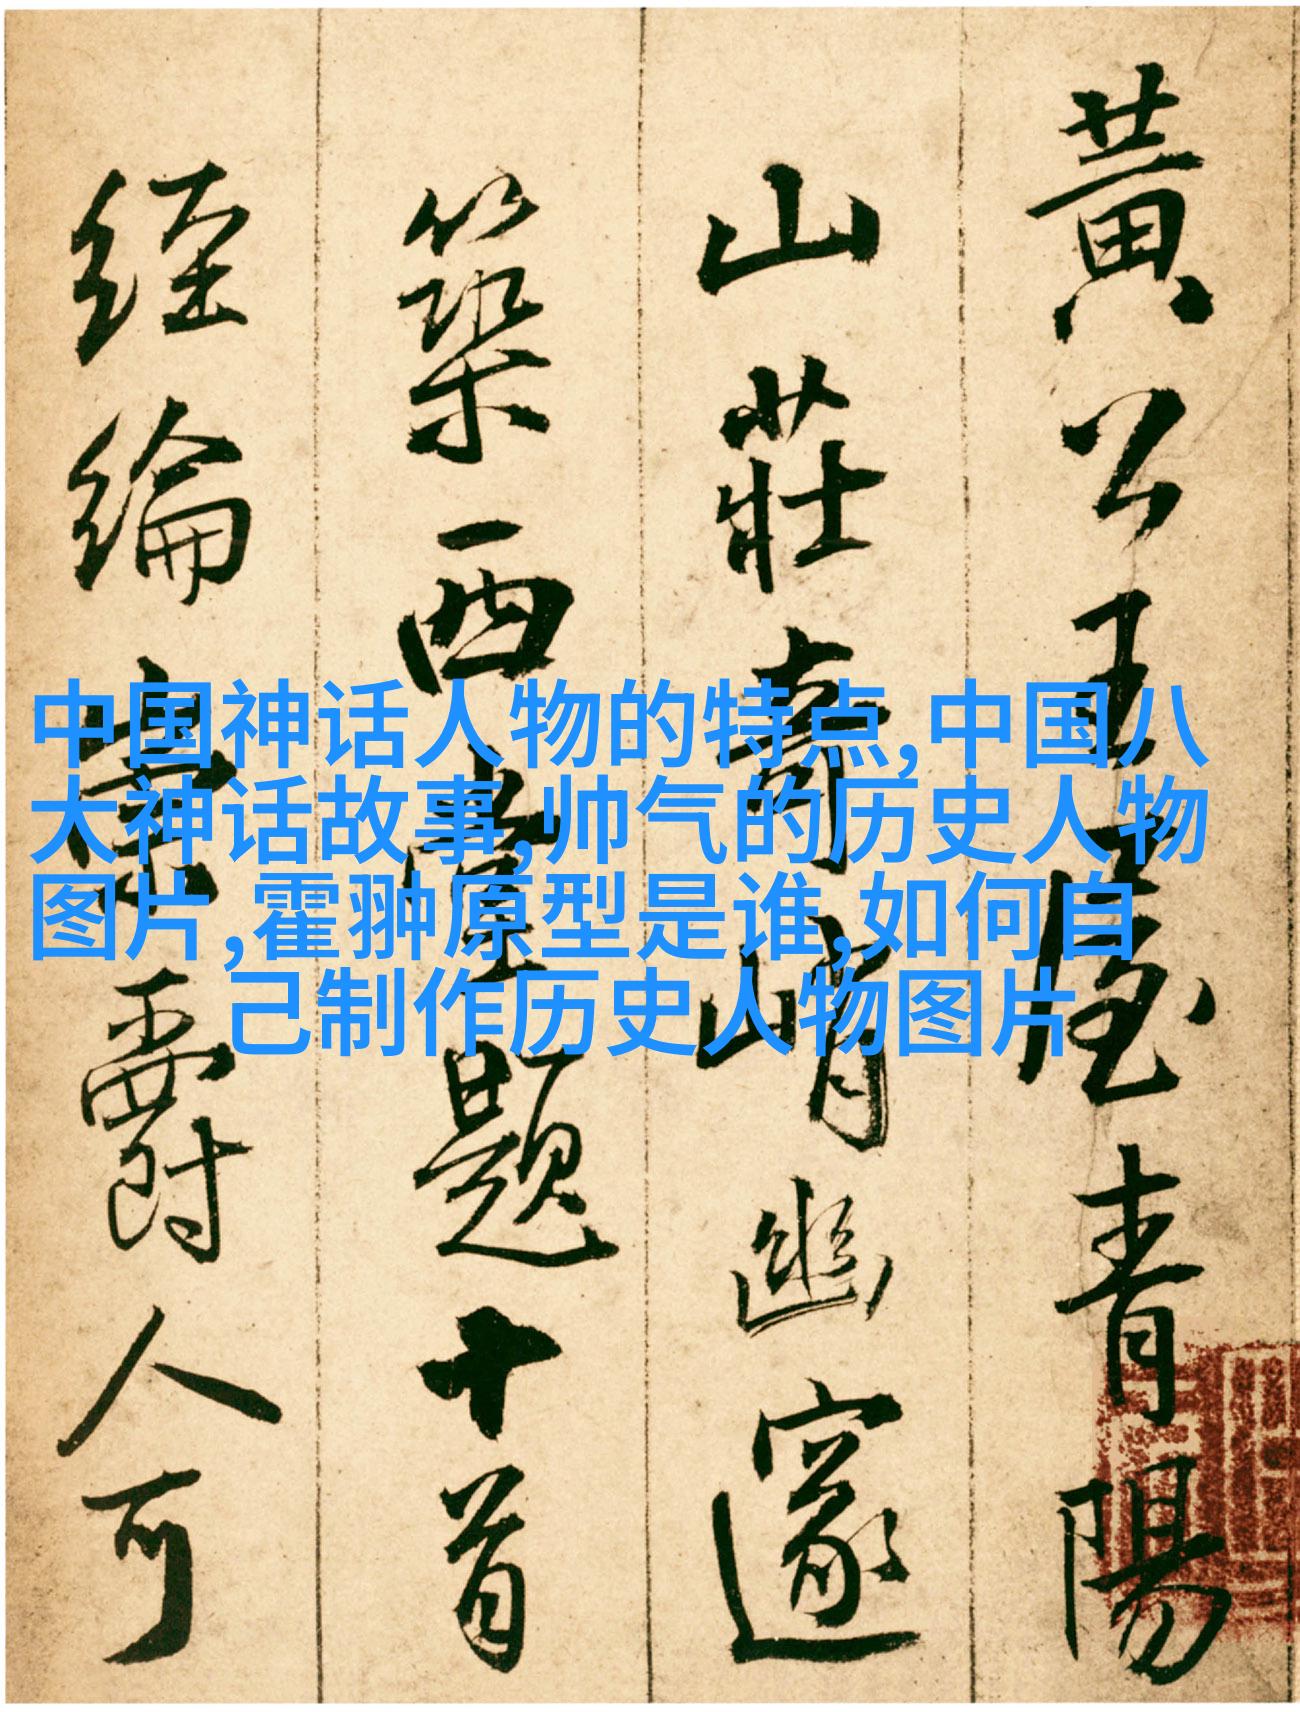 黄公王屋青陽
山莊奇峭幽邃
築西題十首
經綸爵人可
中国神话人物的特点,中国八
大神话故事,帅气的历史人物
图片,霍翀原型是谁,如何自
己制作历史人物图片